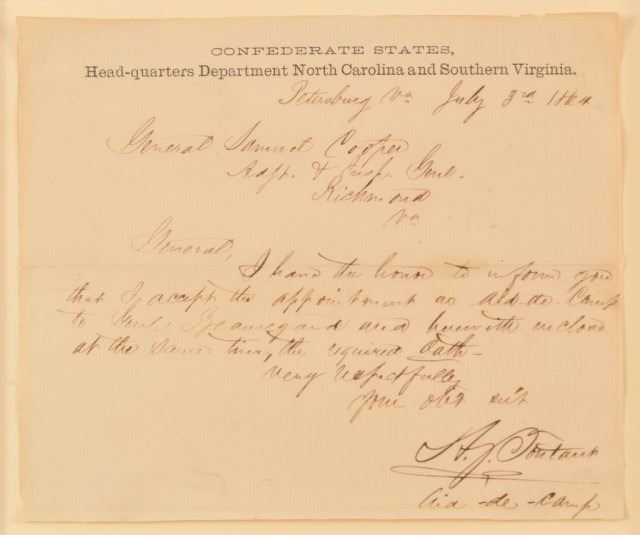 CONFEDERATE STATES,
Head-quarters Department North Carolina and Southern Virginia.
Petersburg Va July 3rd 1864
General Samuel Cooper
Adjt. & Insp. Genl.
Richmond
Va
General,
I have the honor to inform you
that I accept the appointment as aid-de-Camp
to Genl Beauregard and herewith enclose
at the same time, the required Oath-
Very respectfully
Your obt svt
Aid-de-Camp